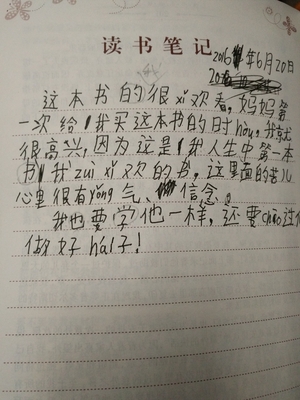 读书笔记
2016年6月20日
这本书的很xǐ欢看,妈妈第
一次给我买这本书的时hòu,我就
很高兴,因为这是我人生中第一本
书我zuì xǐ欢的书,这里面的苦儿
心里很有yǒng气、信念。
我也要学他一样,还要chāo过他
做好hái子!